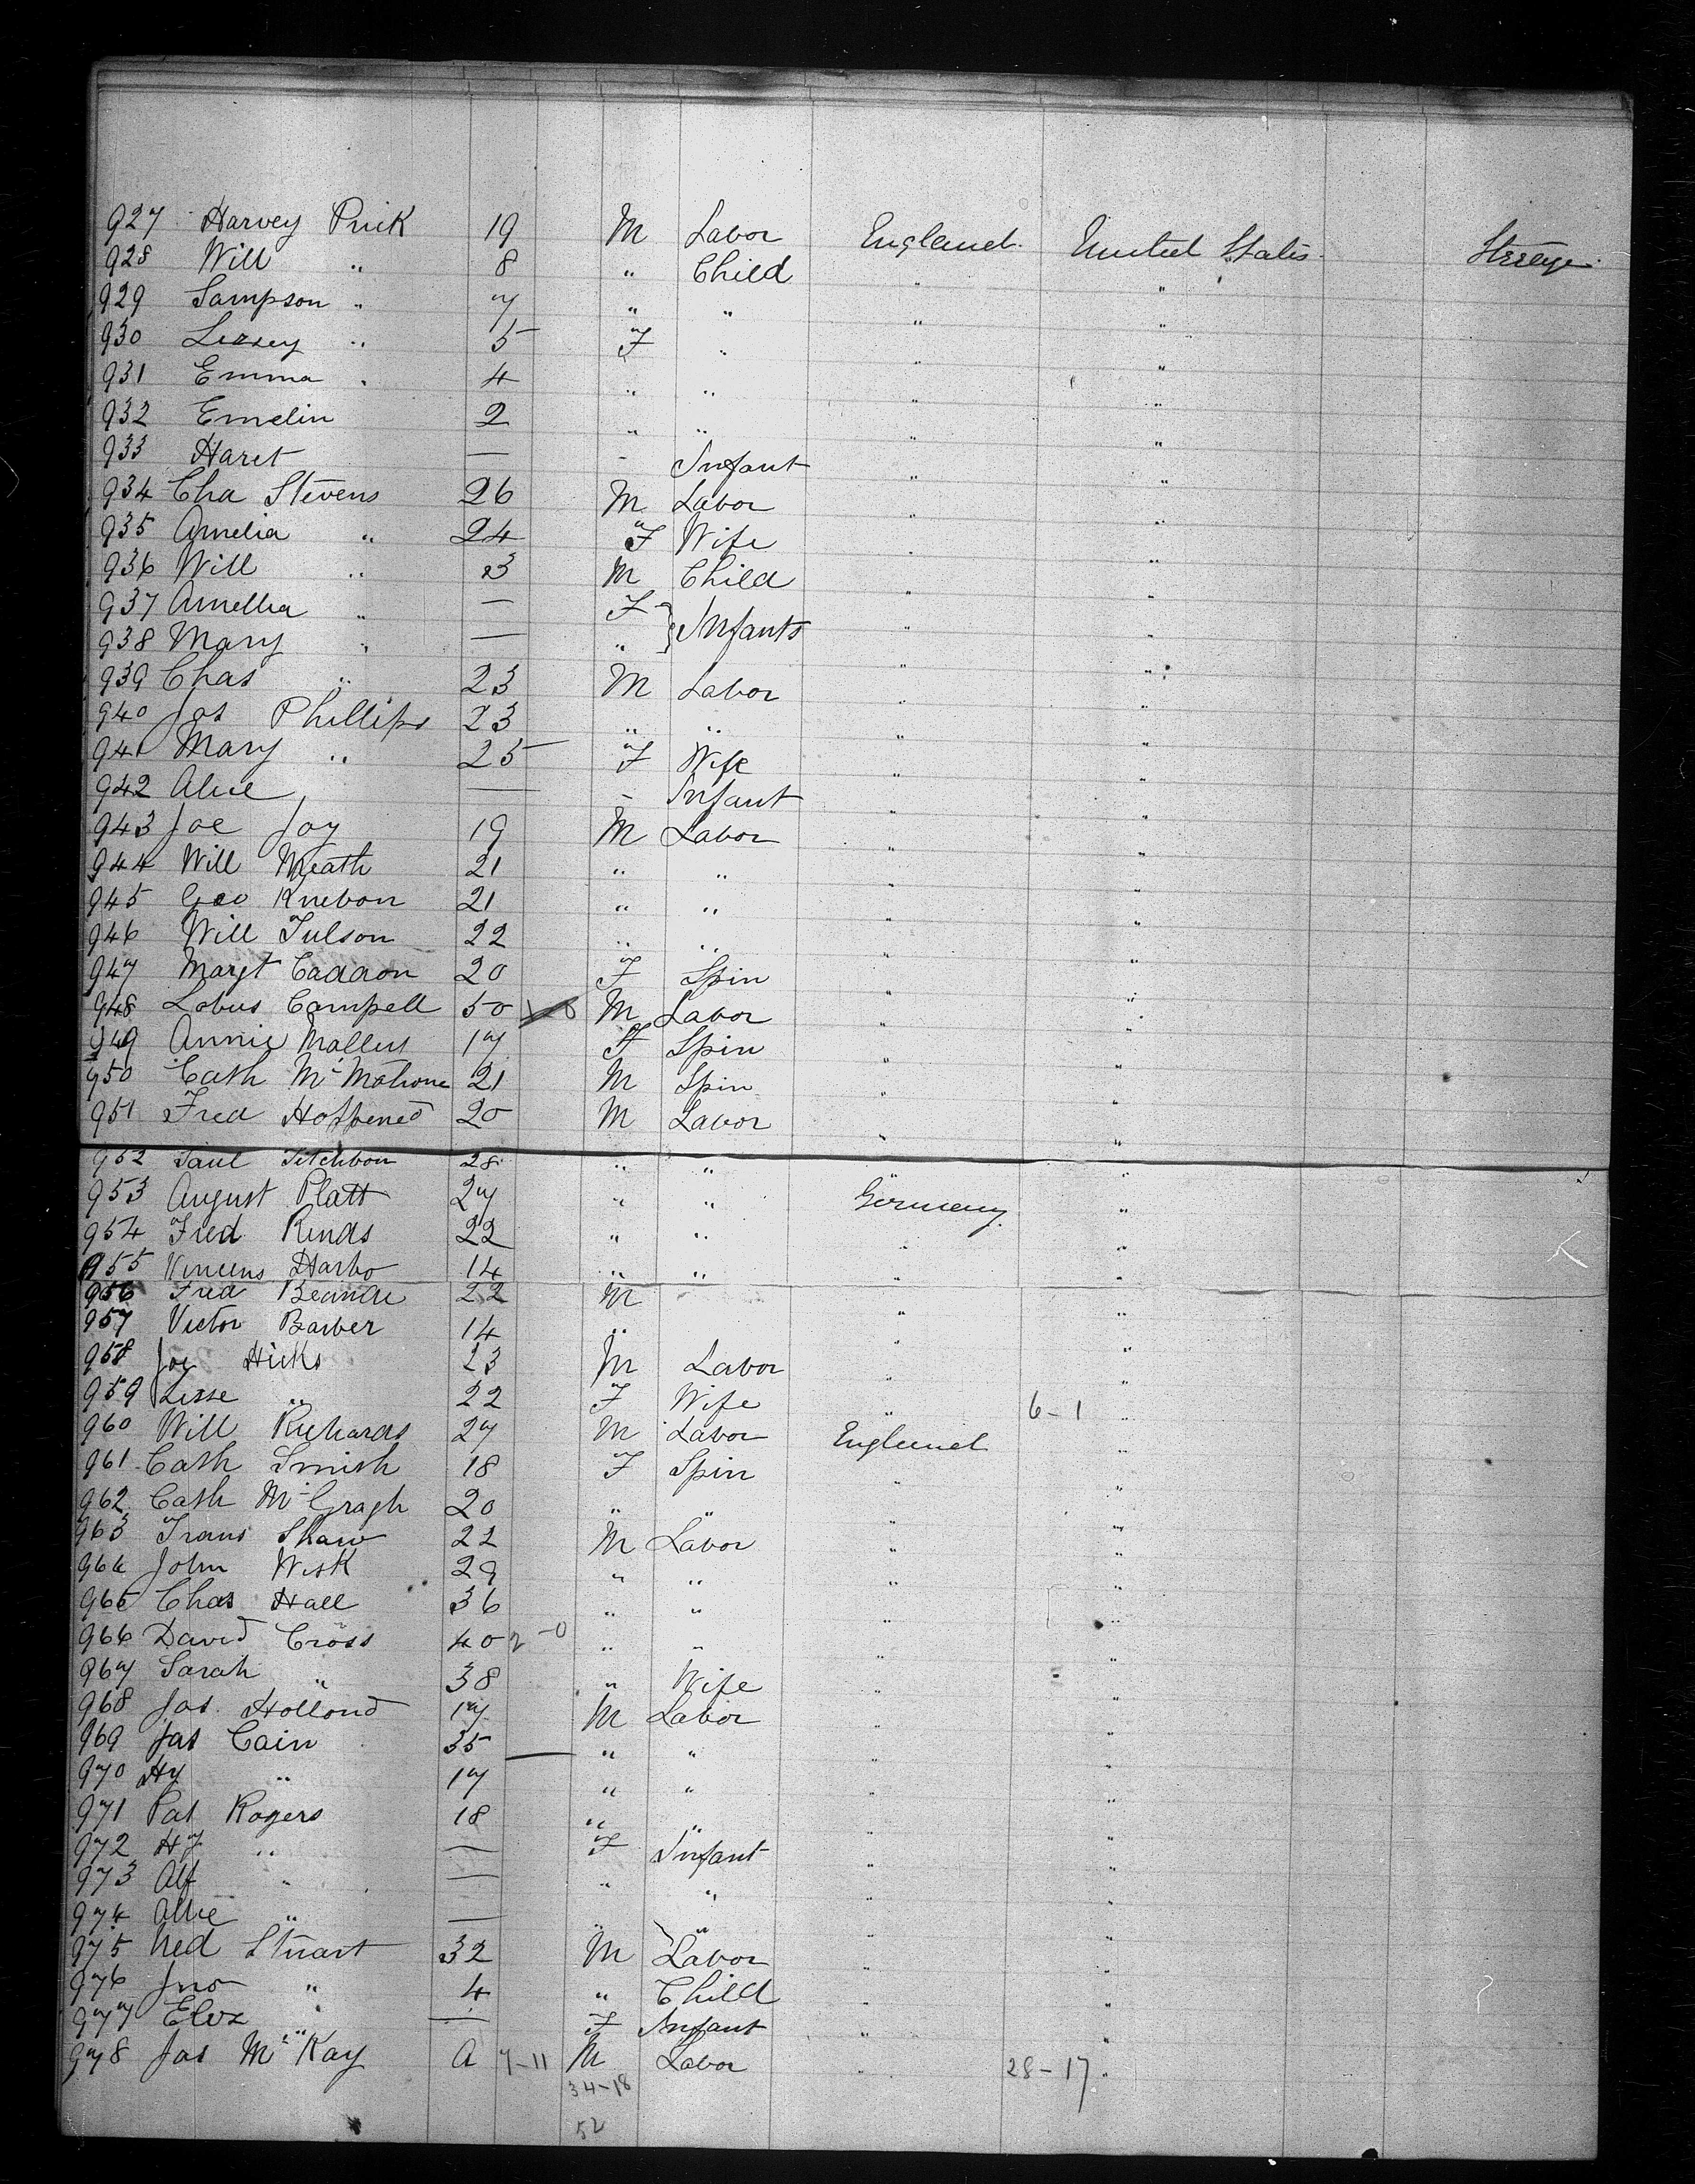 927 Harvey Prick 19 M Labor England United States Steerge
928 Will " 8 " Child " "
929 Sampson " 7 " " " "
930 Lezzey " 5 F " " "
931 Emma " 4 " " " "
932 Emelin 2 " " " "
933 Haret — " Infant " "
934 Cha Stevens 26 M Labor " "
935 Amelia " 24 F Wife " "
936 Will " 3 M Child " "
937 Amellia " — F } Infants " "
938 Mary " — " " "
939 Chas " 23 M Labor " "
940 Jas Phillips 23 " " " "
941 Mary " 25 F Wife " "
942 Alice — " Infant " "
943 Joe Joy 19 M Labor " "
944 Will Meath 21 " " " "
945 Geo Knebon 21 " " " "
946 Will Tulson 22 " " " "
947 Margt Caddon 20 F Spin " "
948 Lobus Campell 50 M Labor " "
949 Annie Mallus 17 F Spin " "
950 Cath McMahone 21 M Spin " "
951 Fred Hoffened 20 M Labor " "
952 Paul Titchbon 28 " " "
953 August Platt 27 " " Germany "
954 Fred Rinds 22 " " " "
955 Vincens Harbo 14 " " " "
956 Fred 22 M " "
957 Victor Barber 14 " " "
958 Joe Hicks 23 M Labor " "
959 Lisse " 22 F Wife " 6-1 "
960 Will Richards 27 M Labor England "
961 Cath Smish 18 F Spin " "
962 Cath McGragh 20 " " " "
963 Frans Shaw 22 M Labor " "
964 John Wisk 29 " " " "
965 Chas Hall 36 " " " "
966 David Cross 40 2-0 " " " "
967 Sarah " 38 " Wife " "
968 Jas. Hollond 17 M Labor " "
969 Jas Cain 35 — " " " "
970 Hy " 17 " " " "
971 Pat Rogers 18 " " " "
972 Hy " — F Infant " "
973 Alf " — " " " "
974 Allie " — " " " "
975 Ned Stuart 32 M Labor " "
976 Jno " 4 " Child " "
977 Eliz " — F Infant " "
978 Jas McKay A 7-11 M Labor " 28-17 "
34-18
52